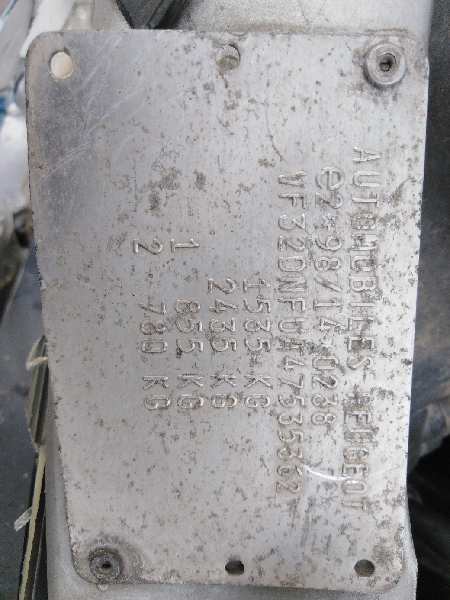 AUTOMOBILES PEUGEOT
e2*98/14*0238
1535 KG
2435 KG
1 855 KG
2 780 KG